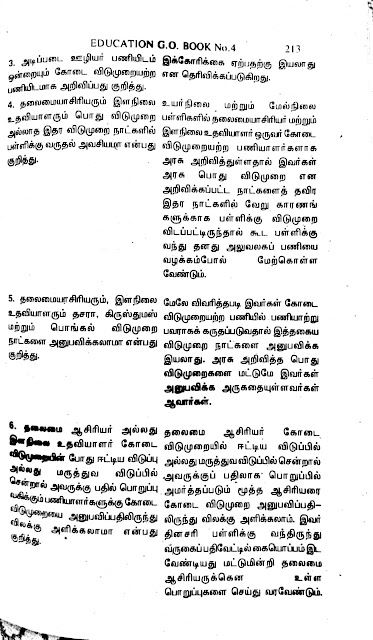 EDUCATION G.O. BOOK No.4 213
3. அடிப்படை ஊழியர் பணியிடம்
ஒன்றையும் கோடை விடுமுறையற்ற
பணியிடமாக அறிவிப்பது குறித்து.
இக்கோரிக்கை ஏற்பதற்கு இயலாது
என தெரிவிக்கப்படுகிறது.
4. தலைமையாசிரியரும் இளநிலை
உதவியாளரும் பொது விடுமுறை
அல்லாத இதர விடுமுறை நாட்களில்
பள்ளிக்கு வருதல் அவசியமா என்பது
குறித்து.
உயர்நிலை மற்றும் மேல்நிலை
பள்ளிகளில் தலைமையாசிரியர் மற்றும்
இளநிலை உதவியாளர் ஒருவர் கோடை
விடுமுறையற்ற பணியாளர்களாக
அரசு அறிவித்துள்ளதால் இவர்கள்
அரசு பொது விடுமுறை என
அறிவிக்கப்பட்ட நாட்களைத் தவிர
இதர நாட்களில் வேறு காரணங்
களுக்காக பள்ளிக்கு விடுமுறை
விடப்பட்டிருந்தால் கூட பள்ளிக்கு
வந்து தனது அலுவலகப் பணியை
வழக்கம்போல் மேற்கொள்ள
வேண்டும்.
5. தலைமையாசிரியரும், இளநிலை
உதவியாளரும் தசரா, கிருஸ்துமஸ்
மற்றும் பொங்கல் விடுமுறை
நாட்களை அனுபவிக்கலாமா என்பது
குறித்து.
மேலே விவரித்தபடி இவர்கள் கோடை
விடுமுறையற்ற பணியில் பணியாற்று
பவராகக் கருதப்படுவதால் இத்தகைய
விடுமுறை நாட்களை அனுபவிக்க
இயலாது. அரசு அறிவித்த பொது
விடுமுறைகளை மட்டுமே இவர்கள்
அனுபவிக்க அருகதையுள்ளவர்கள்
ஆவார்கள்.
6. தலைமை ஆசிரியர் அல்லது
இளநிலை உதவியாளர் கோடை
விடுமுறையின் போது ஈட்டிய விடுப்பு
அல்லது மருத்துவ விடுப்பில்
சென்றால் அவருக்கு பதில் பொறுப்பு
வகிக்கும் பணியாளர்களுக்கு கோடை
விடுமுறையை அனுபவிப்பதிலிருந்து
விலக்கு அளிக்கலாமா என்பது
குறித்து.
தலைமை ஆசிரியர் கோடை
விடுமுறையில் ஈட்டிய விடுப்பில்
அல்லது மருத்துவ விடுப்பில் சென்றால்
அவருக்குப் பதிலாக பொறுப்பில்
அமர்த்தப்படும் மூத்த ஆசிரியரை
கோடை விடுமுறை அனுபவிப்பதி-
லிருந்து விலக்கு அளிக்கலாம். இவர்
தினசரி பள்ளிக்கு வந்திருந்து
வருகைப் பதிவேட்டில் கையொப்பம் இட
வேண்டியது மட்டுமின்றி தலைமை
ஆசிரியருக்கென உள்ள
பொறுப்புகளை செய்து வரவேண்டும்.